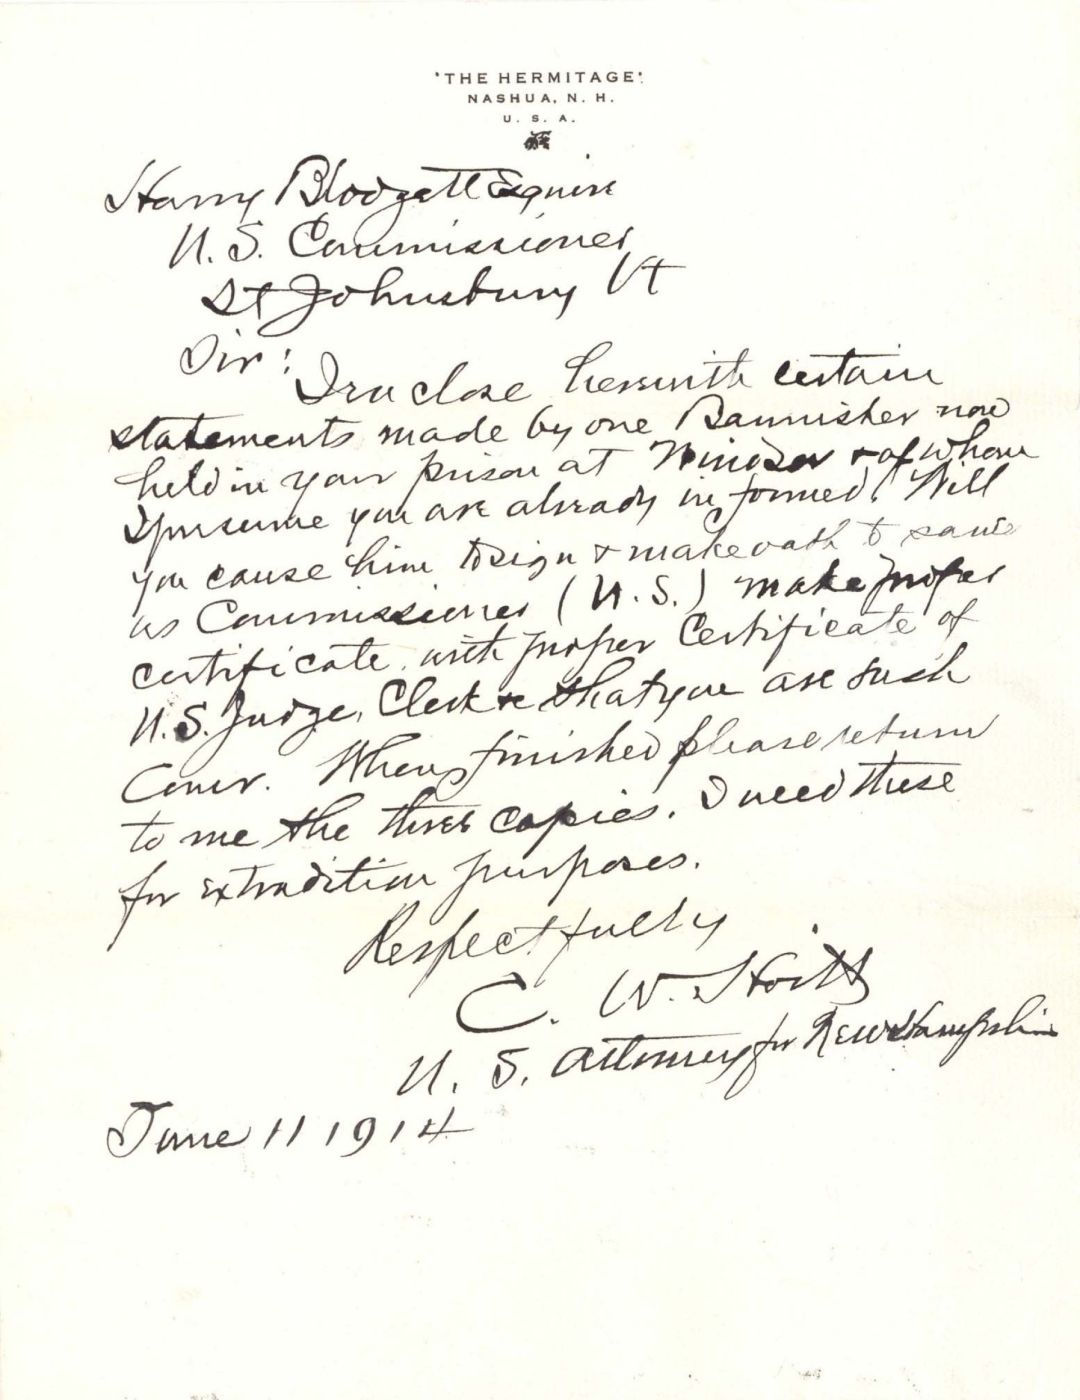 "THE HERMITAGE".
NASHUA, N. H.
U. S. A.
Harry Blodgett Esquire
U. S. Commissioner
St Johnsbury Vt
Sir:
I enclose herewith certain
statements made by one Bannisher now
held in your prison at Windsor & of whom
I presume you are already informed. Will
you cause him to sign & make oath to same
as Commissioner (U. S.) make proper
certificate with proper Certificate of
U. S. Judge, Clerk &c that you are such
Comr. When finished please return
to me the three copies. I need these
for extradition purposes.
Respectfully
C. W. Hoitt
U. S. Attorney for New Hampshire
June 11 1914